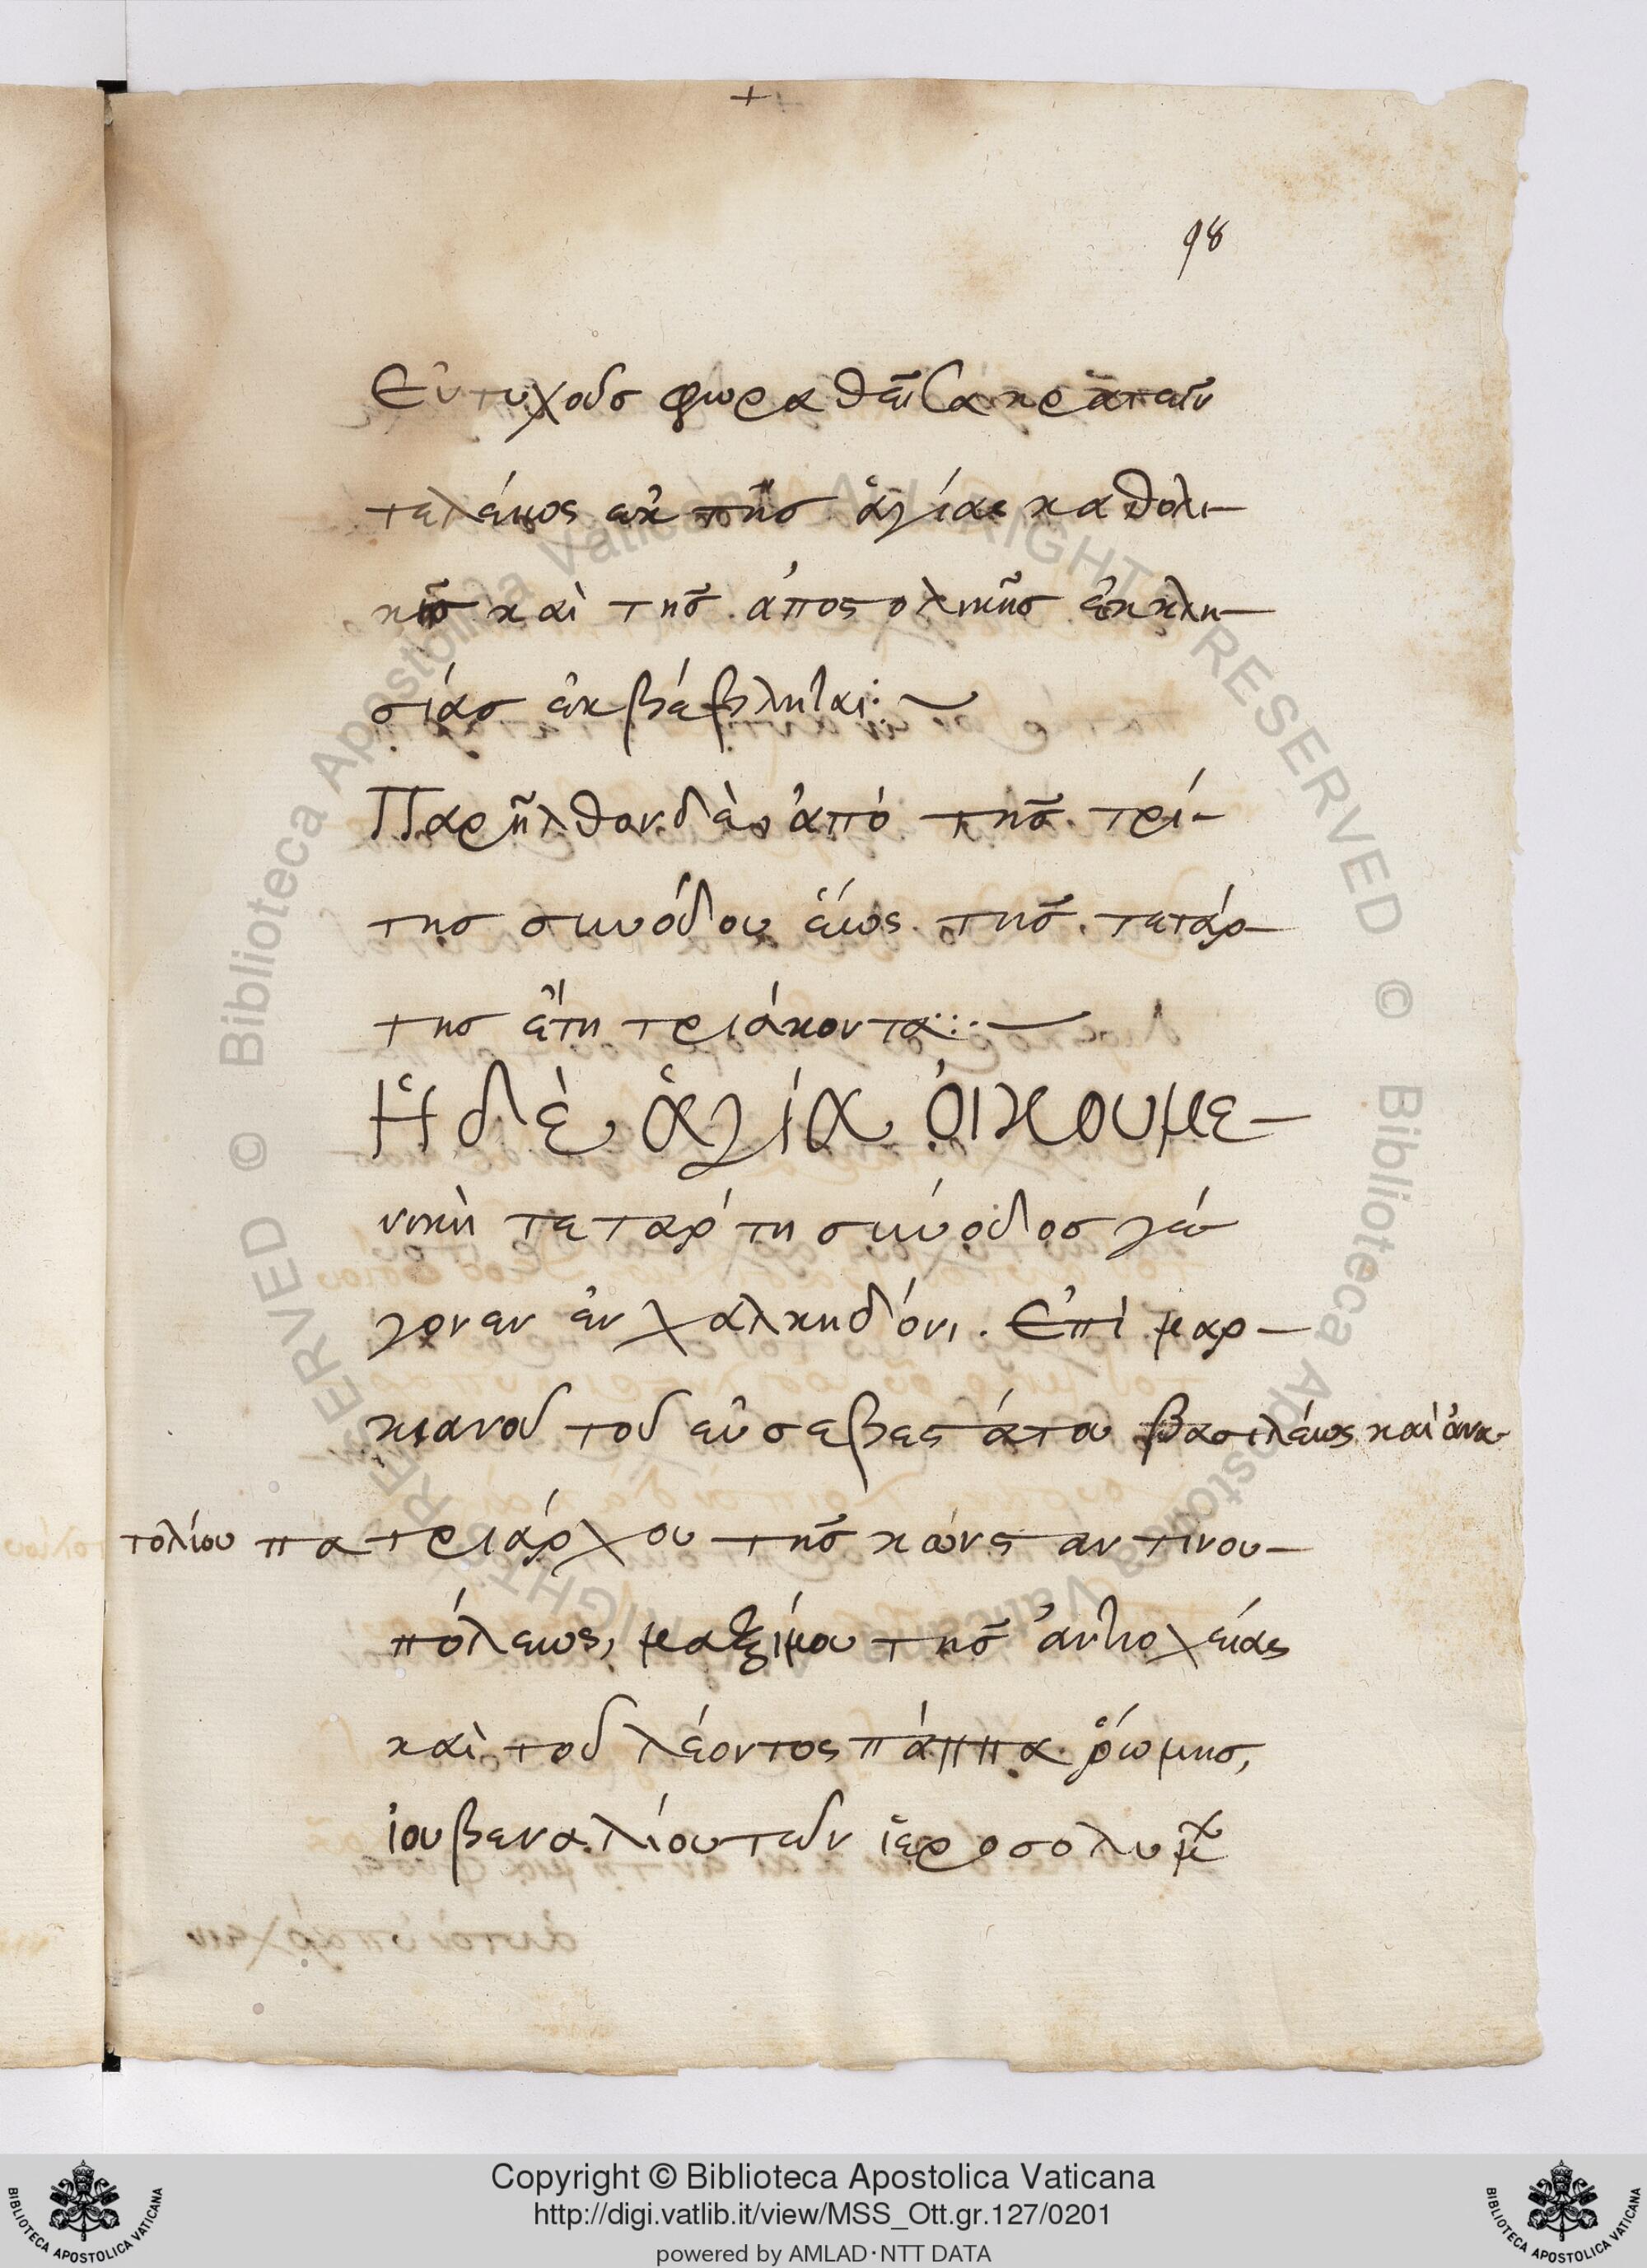 98
Εὐτυχοῦσ φωραθεῖσα κρατεῖν
τελέως ἐκ τῆσ ἁγίας καθολι-
κῆσ καὶ τῆσ ἀποστολικῆσ ἐκκλη-
σίασ ἐκβέβληται:~
Παρῆλθον δὲ ἀπὸ τῆσ τρί-
τησ συνόδου ἕως τῆσ τετάρ-
τησ ἔτη τριάκοντα:~
Ἡ δὲ ἁγία οἰκουμε-
νικὴ τετάρτη σύνοδοσ γέ-
γονεν ἐν χαλκηδόνι. Ἐπὶ μαρ-
κιανοῦ τοῦ εὐσεβεστάτου βασιλέως καὶ ἀνα-
τολίου πατριάρχου τῆσ κώνσταντινου-
πόλεως, μαξίμου τῆσ ἀντιοχείας
καὶ τοῦ λέοντος πάππα ῥώμησ,
ἰουβεναλίου τῶν ἱεροσολύμ
Copyright © Biblioteca Apostolica Vaticana
http://digi.vatlib.it/view/MSS_Ott.gr.127/0201
powered by AMLAD·NTT DATA